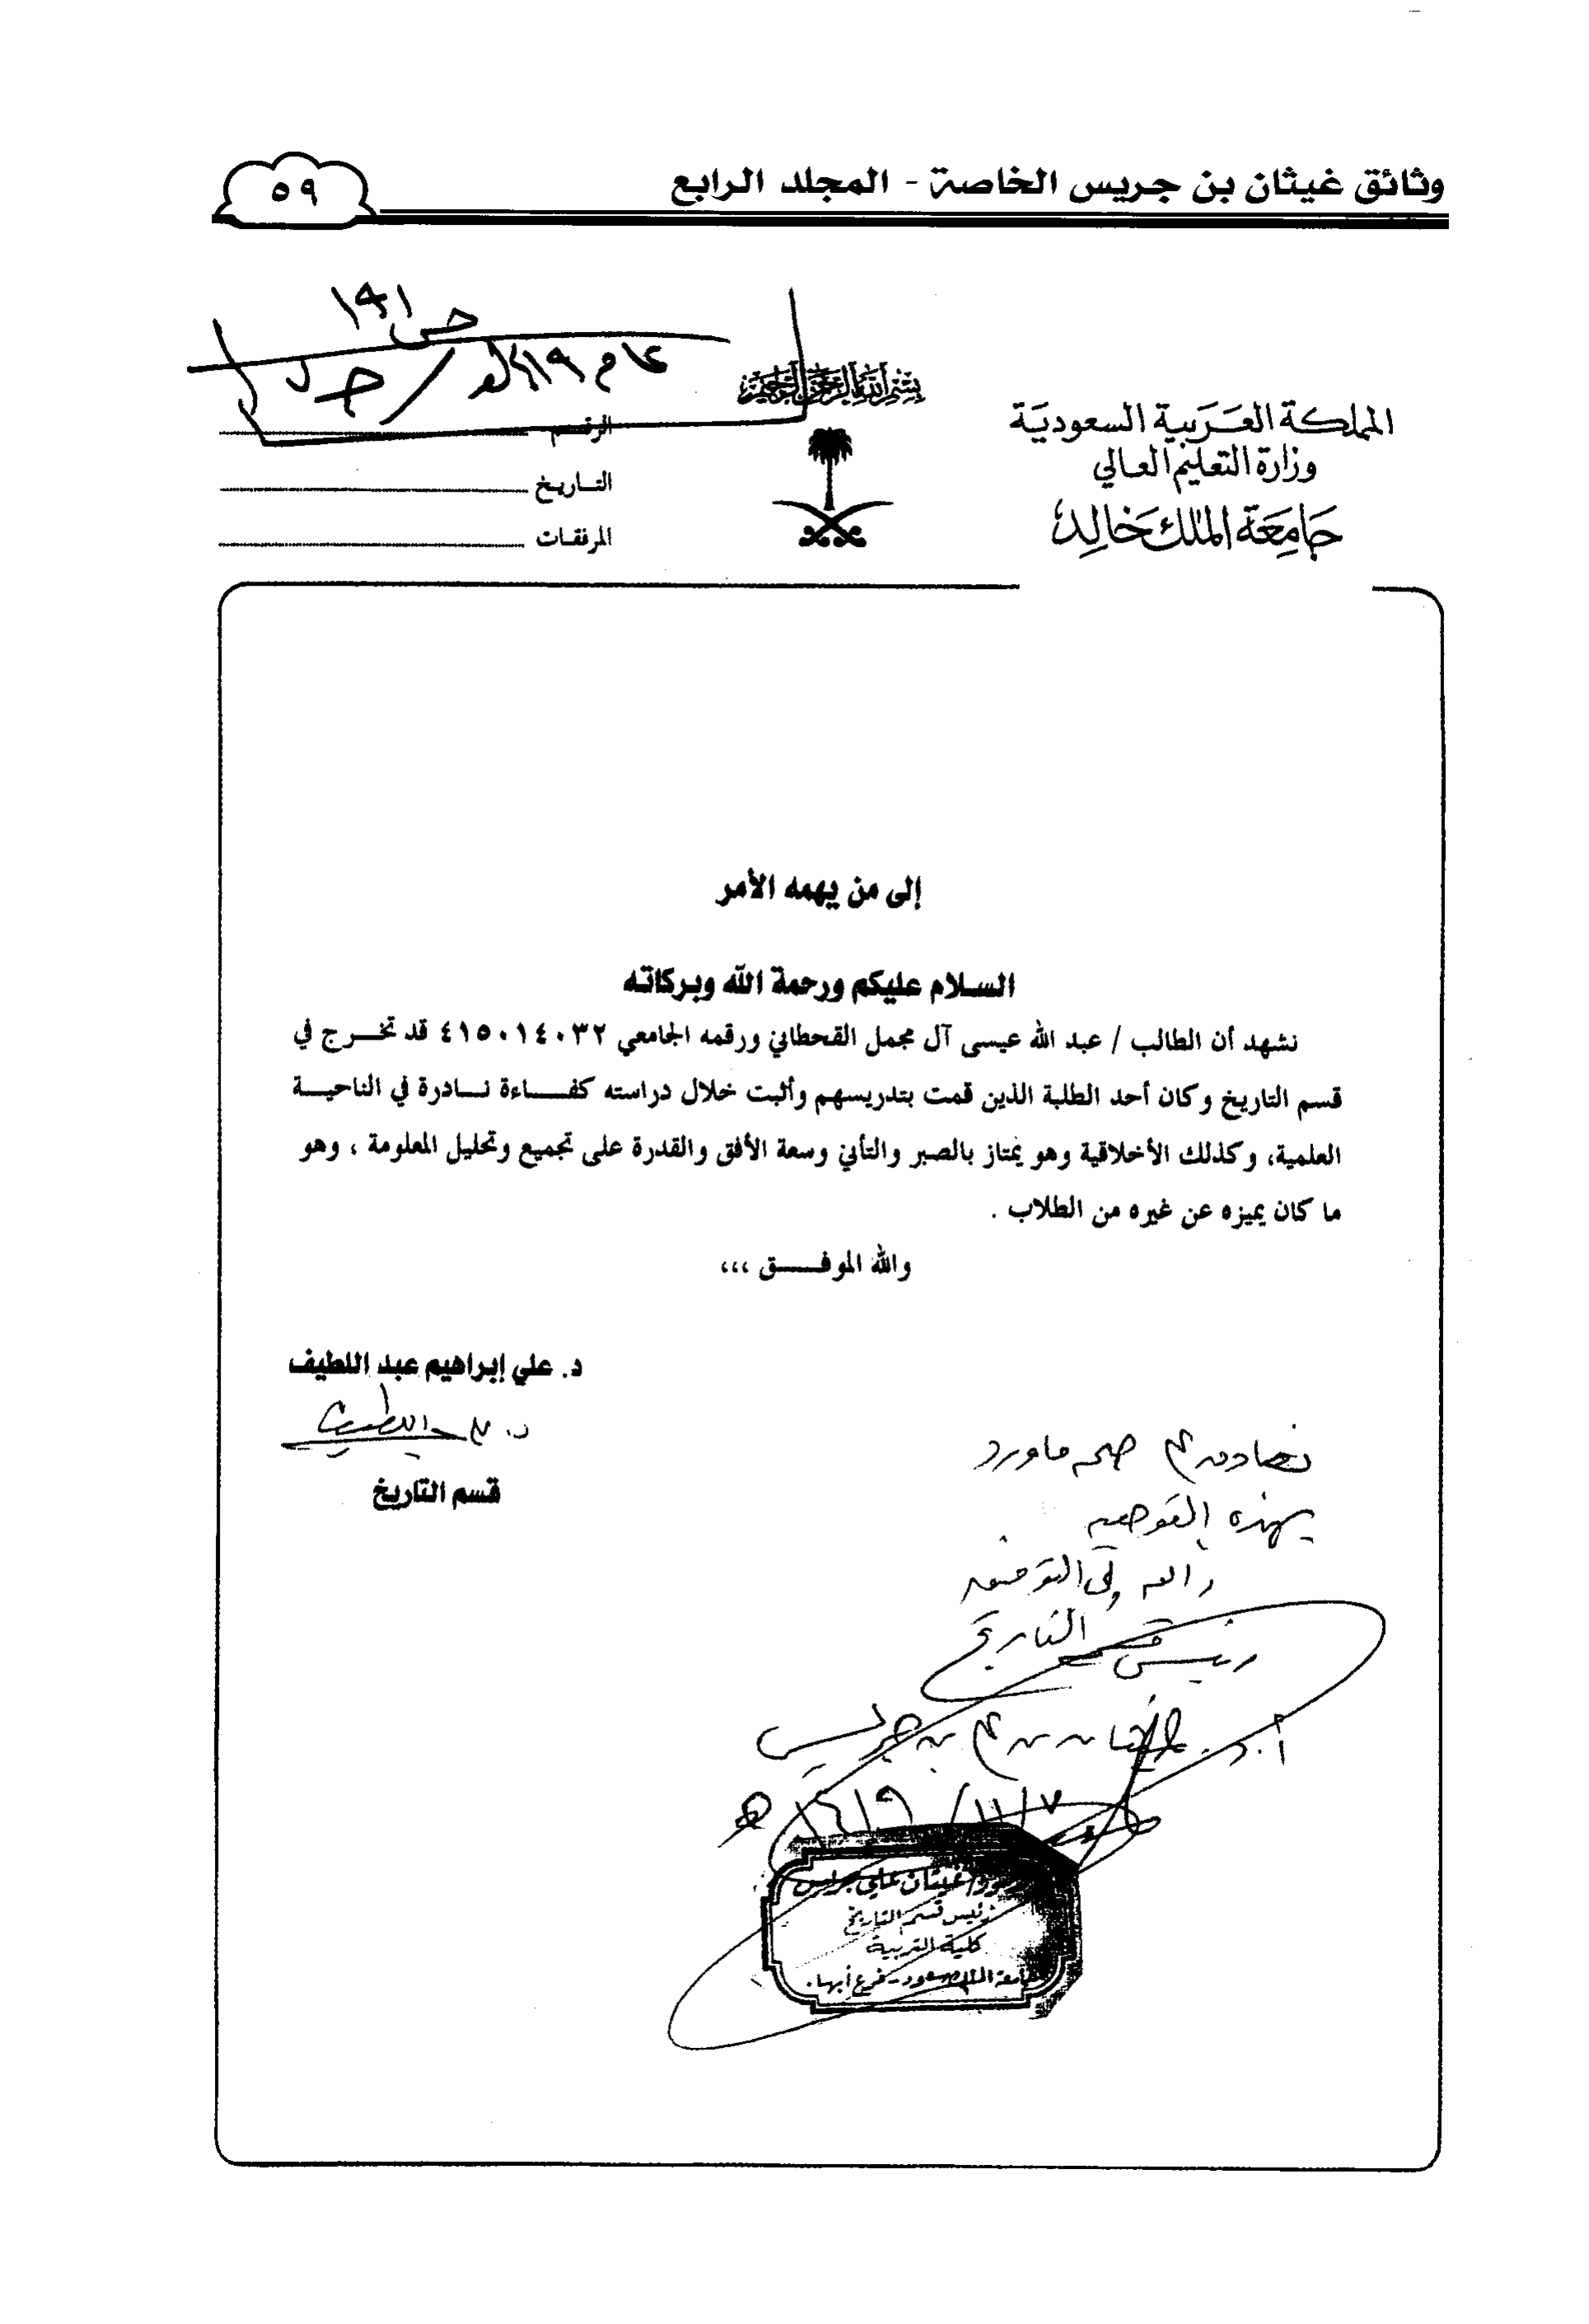 وثائق غيثان بن جريس الخاصة - المجلد الرابع
٥٩
ص ١٩١
عام ١٤١٩هـ /
بسم الله الرحمن الرحيم
المملكة العربية السعودية
وزارة التعليم العالي
جامعة الملك خالد
الرقم
التاريخ
المرفقات
إلى من يهمه الأمر
السلام عليكم ورحمة الله وبركاته
نشهد أن الطالب / عبد الله عيسى آل مجمل القحطاني ورقمه الجامعي ٤١٥٠١٤٠٣٢ قد تخرج في
قسم التاريخ وكان أحد الطلبة الذين قمت بتدريسهم وأثبت خلال دراسته كفاءة نادرة في الناحية
العلمية، وكذلك الأخلاقية وهو يمتاز بالصبر والتأني وسعة الأفق والقدرة على تجميع وتحليل المعلومة ، وهو
ما كان يميزه عن غيره من الطلاب .
والله الموفق ،،،
د. علي إبراهيم عبد اللطيف
قسم التاريخ
نصادق على صحة ماورد
بهذه التوصية
والله ولي التوفيق
رئيس قسم التاريخ
أ.د. غيثان بن علي بن جريس
٧/١١/١٤١٩هـ
غيثان علي جريس
رئيس قسم التاريخ
كلية التربية
جامعة الملك سعود - فرع أبها.